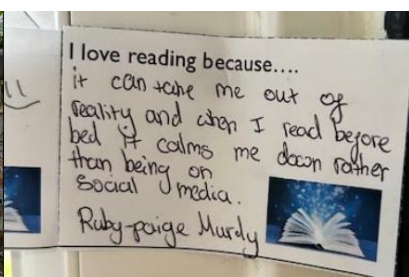 I love reading because....
it can take me out of
reality and when I read before
bed it calms me down rather
than being on
social media.
Ruby-paige Murdy